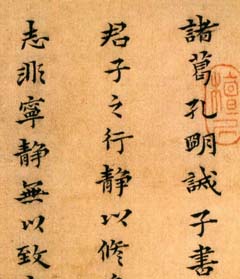 諸葛孔明誡子書
君子之行靜以脩
志非寧靜無以致